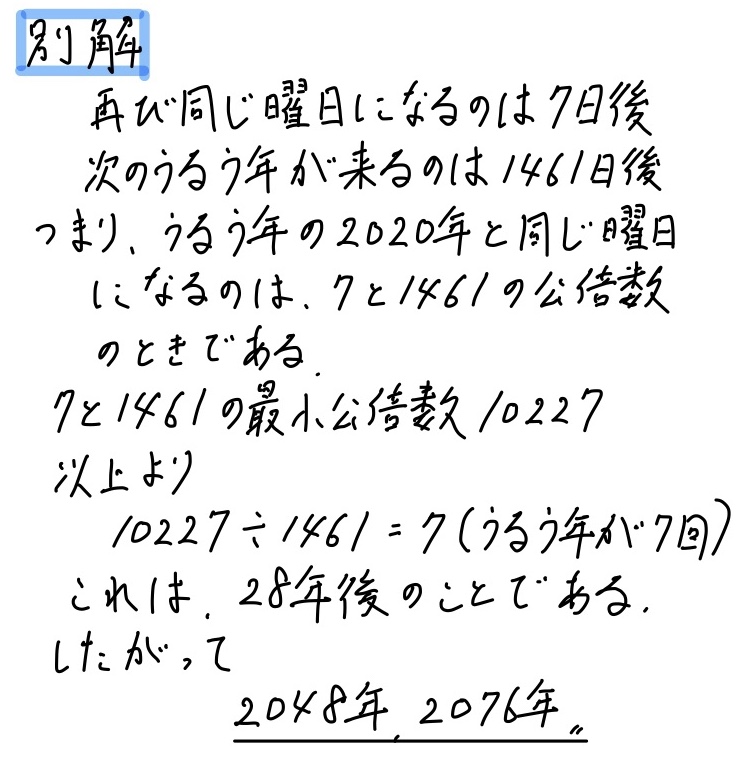 別解
再び同じ曜日になるのは7日後
次のうるう年が来るのは1461日後
つまり、うるう年の2020年と同じ曜日
になるのは、7と1461の公倍数
のときである.
7と1461の最小公倍数10227
以上より
10227÷1461=7(うるう年が7回)
これは、28年後のことである.
したがって
2048年, 2076年〃